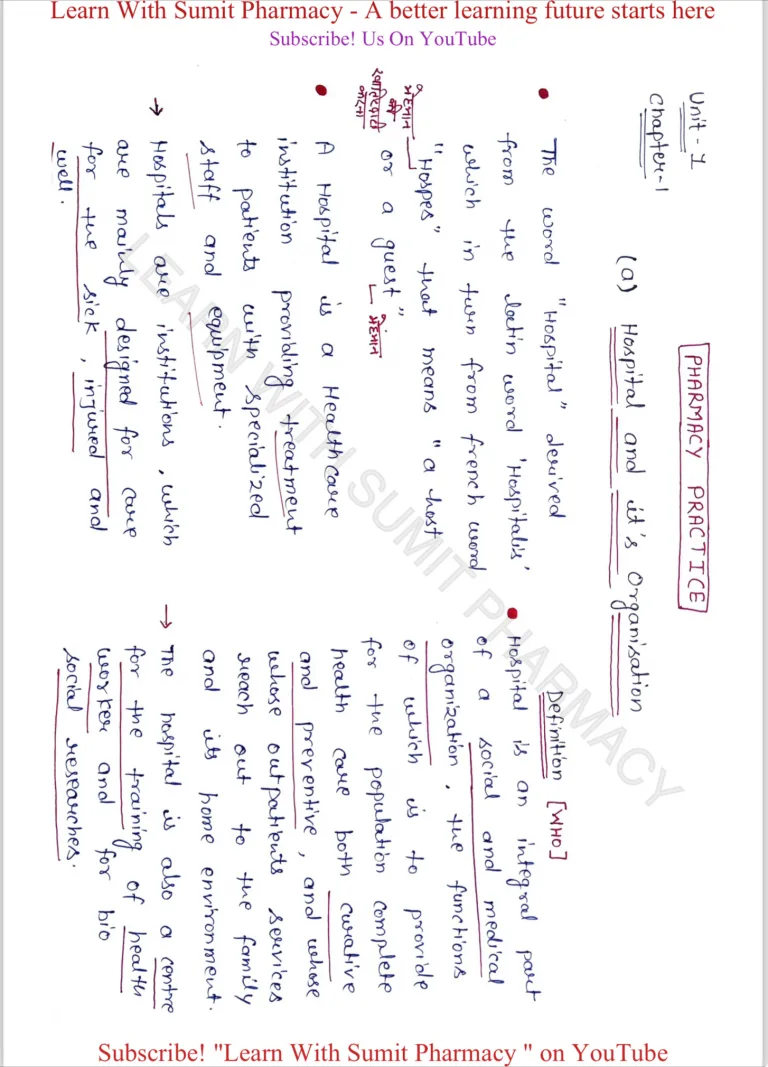 Learn With Sumit Pharmacy - A better learning future starts here
Subscribe! Us On YouTube
Unit - 1
Chapter-1
PHARMACY PRACTICE
(a) Hospital and it's Organisation
• The word "Hospital" derived
from the latin word 'Hospitalis'
which in turn from french word
"Hospes" that means "a host
or a guest"
मेहमान
की
खातिरदारी
करना
मेहमान
• A Hospital is a Healthcare
institution providing treatment
to patients with specialized
staff and equipment.
→ Hospitals are institutions, which
are mainly designed for care
for the sick, injured and
well.
Definition [WHO]
• Hospital is an integral part
of a social and medical
organization, the functions
of which is to provide
for the population complete
health care both curative
and preventive, and whose
whose outpatients services
reach out to the family
and its home environment.
→ The hospital is also a centre
for the training of health
worker and for bio
social researches.
LEARN WITH SUMIT PHARMACY
Subscribe! "Learn With Sumit Pharmacy " on YouTube